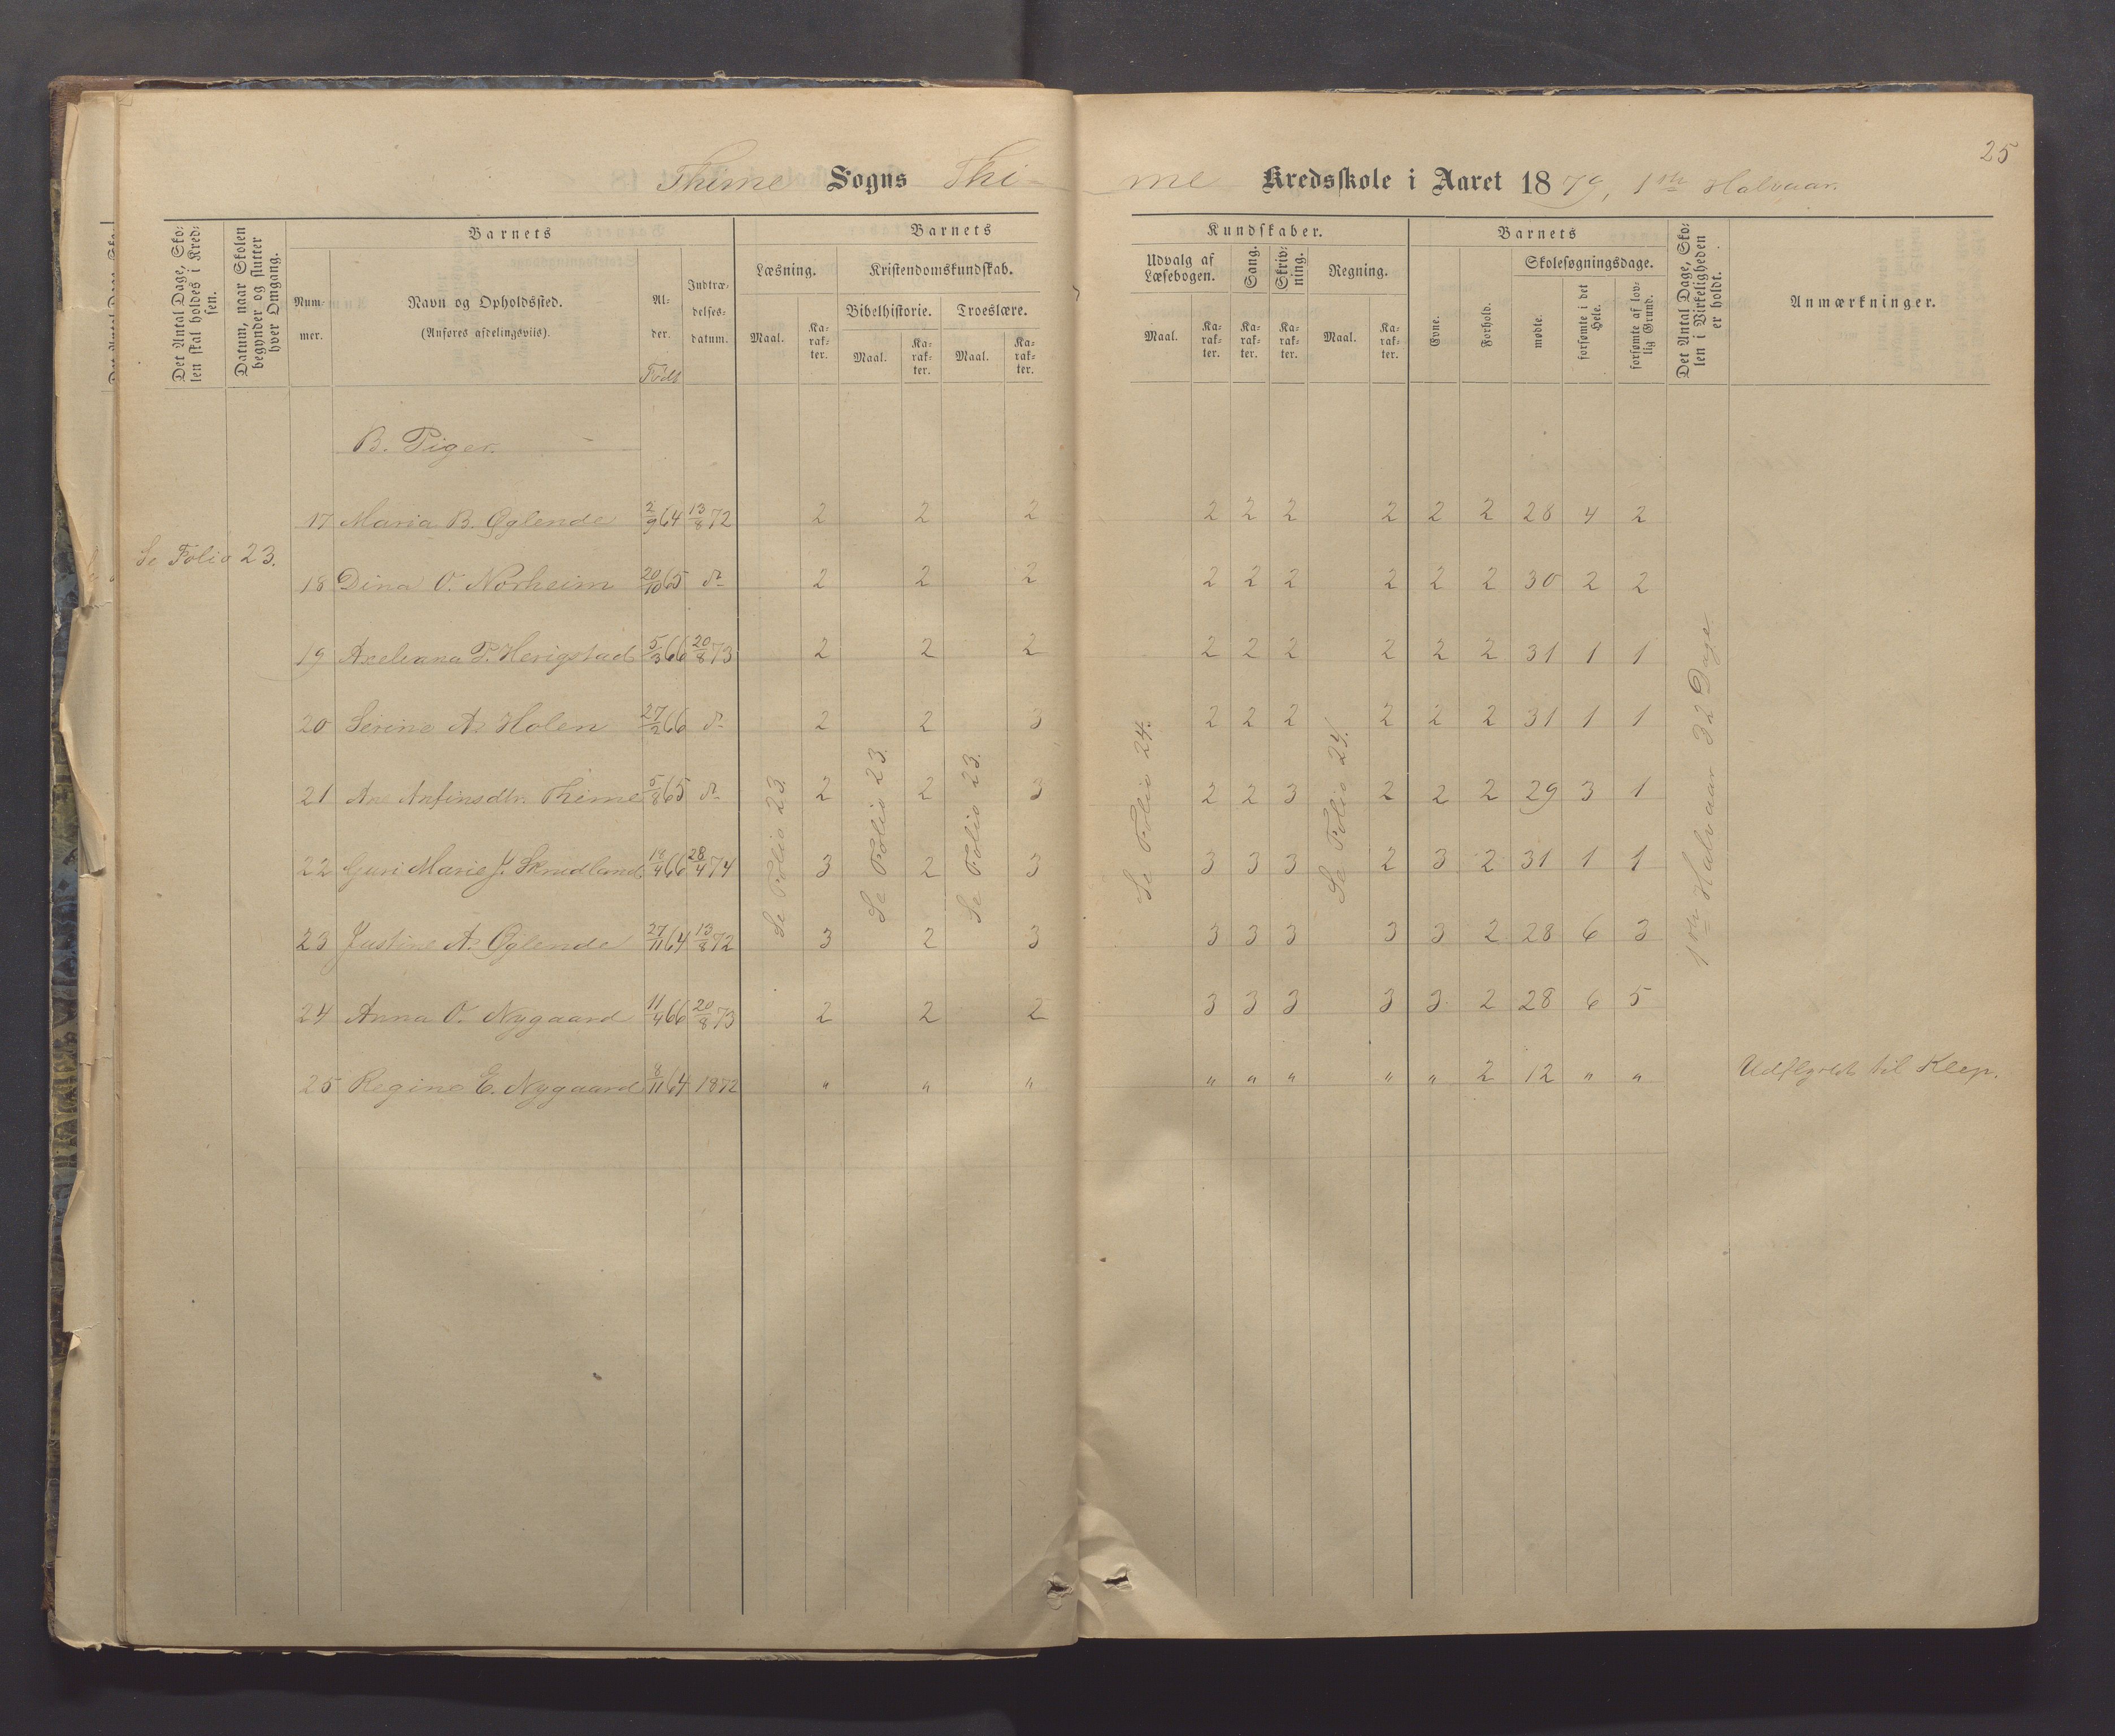 25
Thime Sogns Thime Kredsskole i Aaret 1879, 1ste Halvaar.
Det Antal Dage, Skolen skal holdes i Kredsen.
Datum, naar Skolen begynder og slutter hver Omgang.
Barnets
Nummer.
Navn og Opholdssted.
(Anføres afdelingsviis).
Alder.
Født
Indtrædelsesdatum.
Barnets Kundskaber.
Læsning.
Maal.
Karakter.
Kristendomskundskab.
Bibelhistorie.
Maal.
Karakter.
Troeslære.
Maal.
Karakter.
Udvalg af Læsebogen.
Maal.
Karakter.
Sang.
Karakter.
Skrivning.
Karakter.
Regning.
Maal.
Karakter.
Barnets
Evne.
Forhold.
Skolesøgningsdage.
mødte.
forsømte i det Hele.
forsømte af lovlig Grund.
Det Antal Dage, Skolen i Virkeligheden er holdt.
Anmærkninger.
B. Piger.
17 Maria B. Øglende 2/9 64 13/8 72 2 2 2 2 2 2 2 2 2 28 4 2
Se Folio 23.
18 Dina O. Norheim 20/10 65 do 2 2 2 2 2 2 2 2 2 30 2 2
19 Axeliana P. Herigstad 5/3 66 20/8 73 2 2 2 2 2 2 2 2 2 31 1 1
20 Serine A. Holen 27/2 66 do 2 2 3 2 2 2 2 2 2 31 1 1
21 Ane Anfinsdtr. Thime 5/8 65 do 2 2 3 2 2 3 2 2 2 29 3 1
22 Guri Marie J. Skrudland 18/4 66 28/4 74 3 2 3 3 3 3 2 3 2 31 1 1
23 Justine A. Øglende 27/11 64 13/8 72 3 2 3 3 3 3 3 3 2 28 6 3
24 Anna O. Nygaard 11/4 66 20/8 73 2 2 2 3 3 3 3 3 2 28 6 5
25 Regine E. Nygaard 8/11 64 1872 " " " " " " " " 2 12 " " Udflyttet til Klep.
Se Folio 23.
Se Folio 23.
Se Folio 23.
Se Folio 24.
Se Folio 24.
1ste Halvaar 32 Dage.